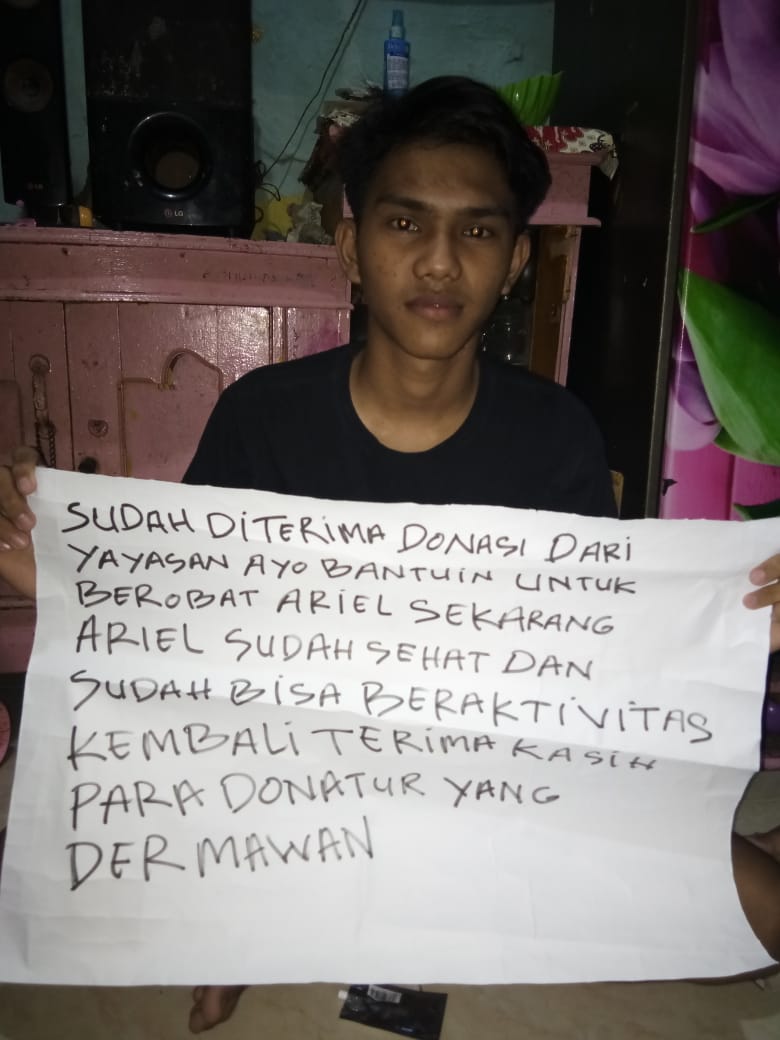 LG
LG
SUDAH DITERIMA DONASI DARI
YAYASAN AYO BANTUIN UNTUK
BEROBAT ARIEL SEKARANG
ARIEL SUDAH SEHAT DAN
SUDAH BISA BERAKTIVITAS
KEMBALI TERIMA KASIH
PARA DONATUR YANG
DERMAWAN